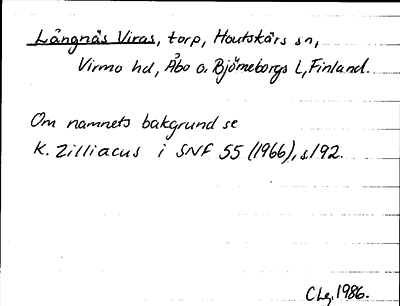 Långnäs Viras, torp, Houtskärs sn,
Virmo hd, Åbo o. Björneborgs l, Finland.
Om namnets bakgrund se
K. Zilliacus i SNF 55 (1966), s 192.
CLg. 1986.